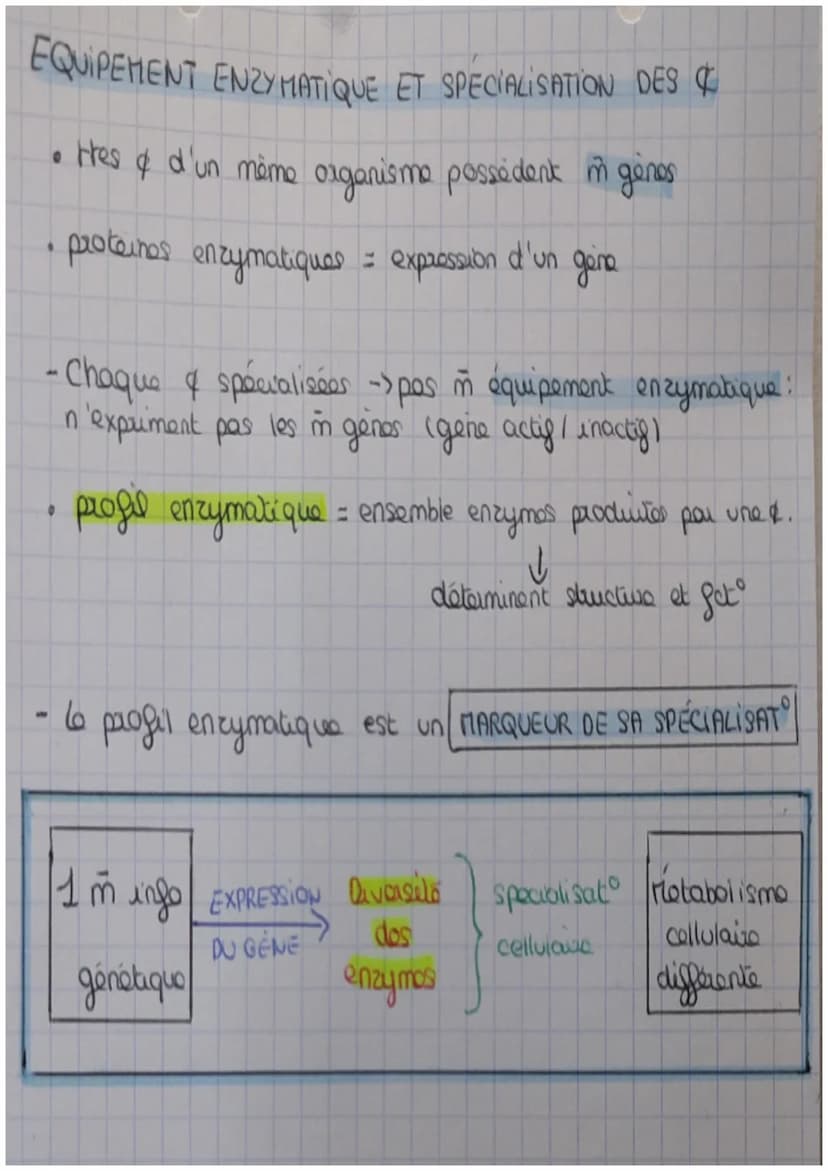 EQUIPEMENT ENZYMATIQUE ET SPÉCIALISATION DES ¢
• ttes ¢ d'un même organisme possèdent m̄ gènes
• protéines enzymatiques = expression d'un gène
- Chaque ¢ spécialisées -> pas m̄ équipement enzymatique :
n'expriment pas les m̄ gènes (gène actif / inactif)
• profil enzymatique = ensemble enzymes produites par une ¢.
↓
déterminent structure et fct°
- le profil enzymatique est un MARQUEUR DE SA SPÉCIALISAT°
1 m̄ info
génétique
EXPRESSION
DU GÈNE
Diversité
des
enzymes
specialisat°
cellulaire
Métabolisme
cellulaire
différente